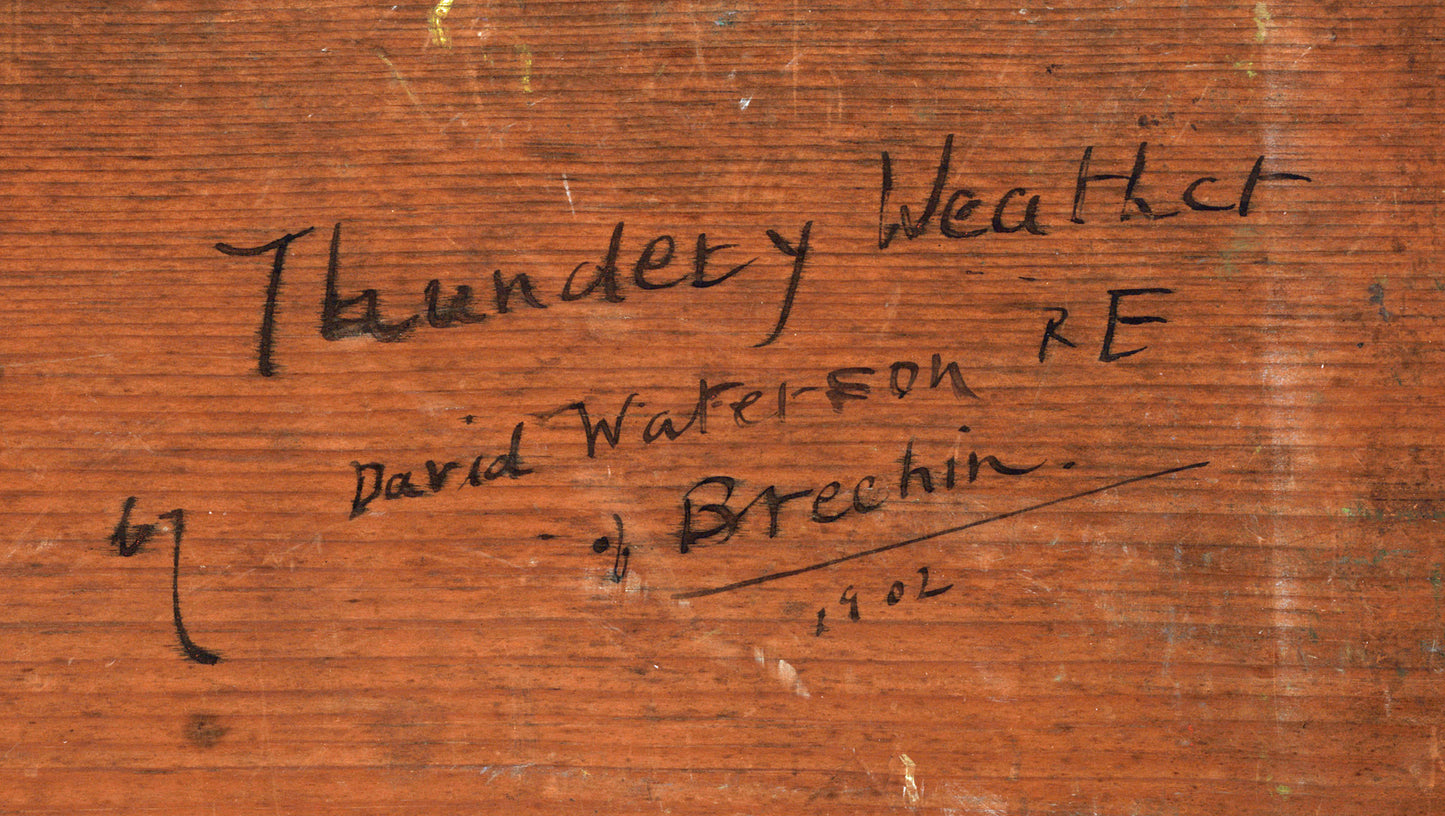 Thundery Weather
by David Waterson RE
of Brechin.
1902